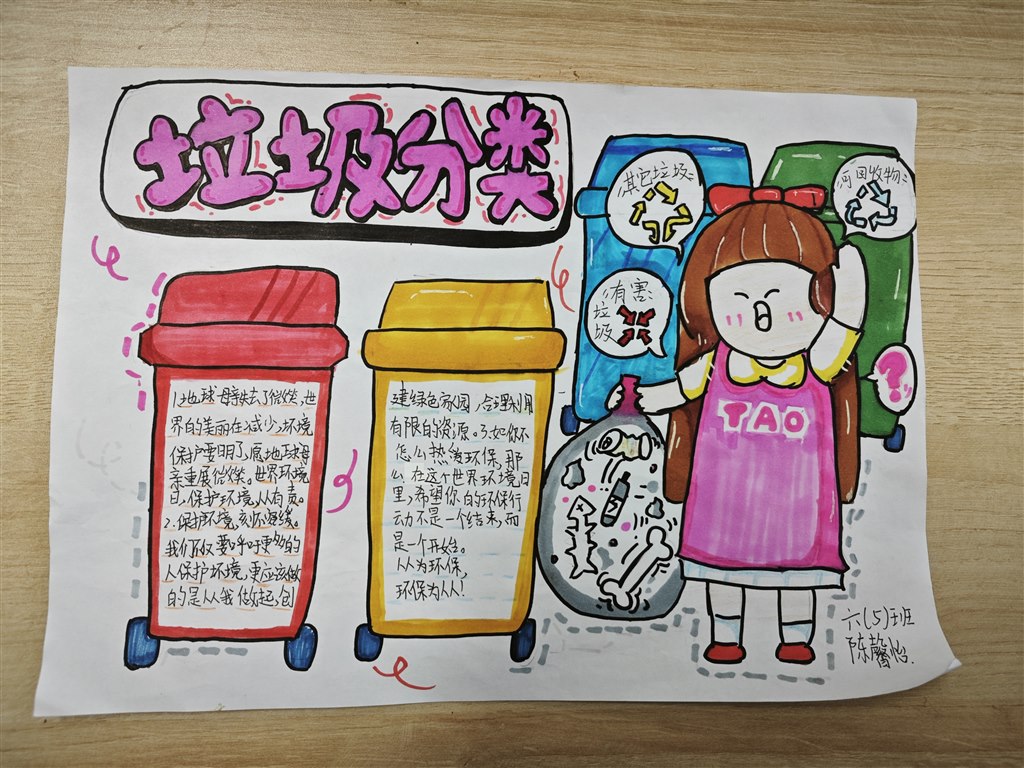 垃圾分类
其它垃圾:
可回收物:
有害:
垃
圾
?
TAO
1.地球母亲失去了微笑,世
界的美丽在减少,环境
保护要明了,愿地球母
亲重展微笑。世界环境
日,保护环境,从有责。
2.保护环境,刻不容缓。
我们不仅要呼吁更多的
人保护环境,更应该做
的是从我做起,创
建绿色家园,合理利用
有限的资源。3.如你不
怎么热爱环保,那
么在这个世界环境日
里,希望你的环保行
动不是一个结束,而
是一个开始。
人人为环保,
环保为人人!
六(5)班
陈馨怡.